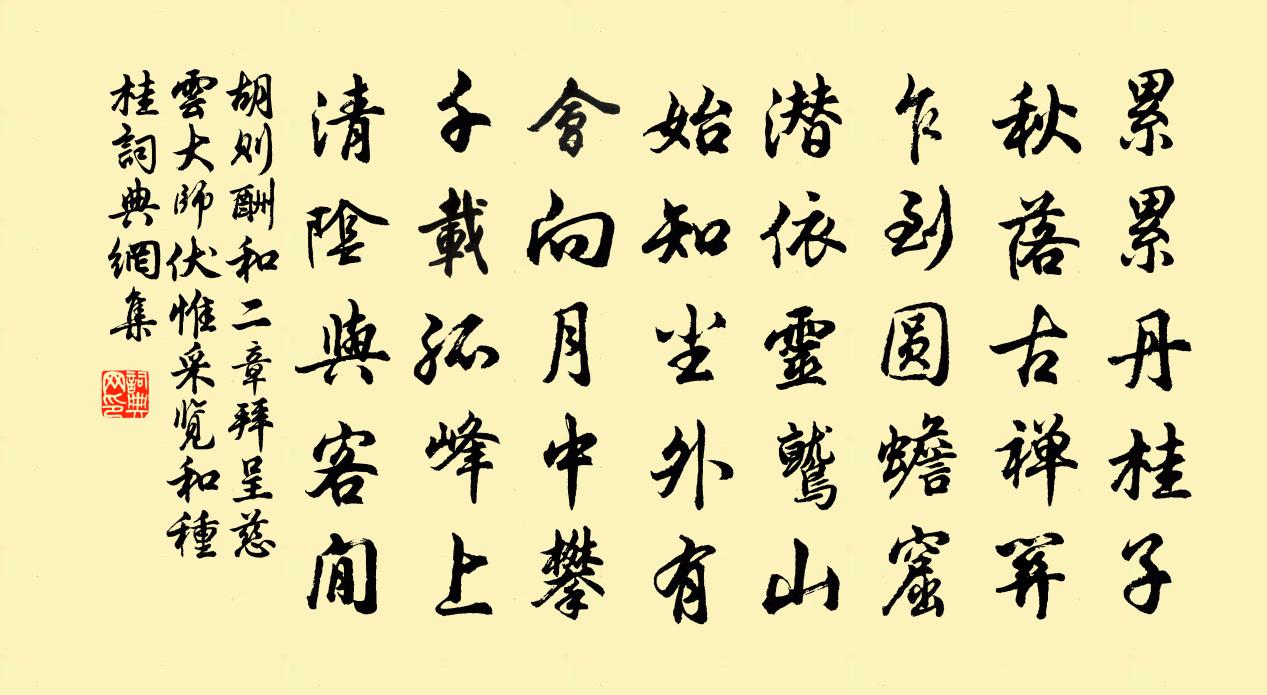 累累丹桂子
秋落古禅関
乍到圆蟾窟
潜依靈鷲山
始知尘外有
會向月中攀
千載孤峰上
清陰與客閒
胡则酬和二章拜呈慈
雲大师伏惟采览和種
桂詞典網集
詞典
网印